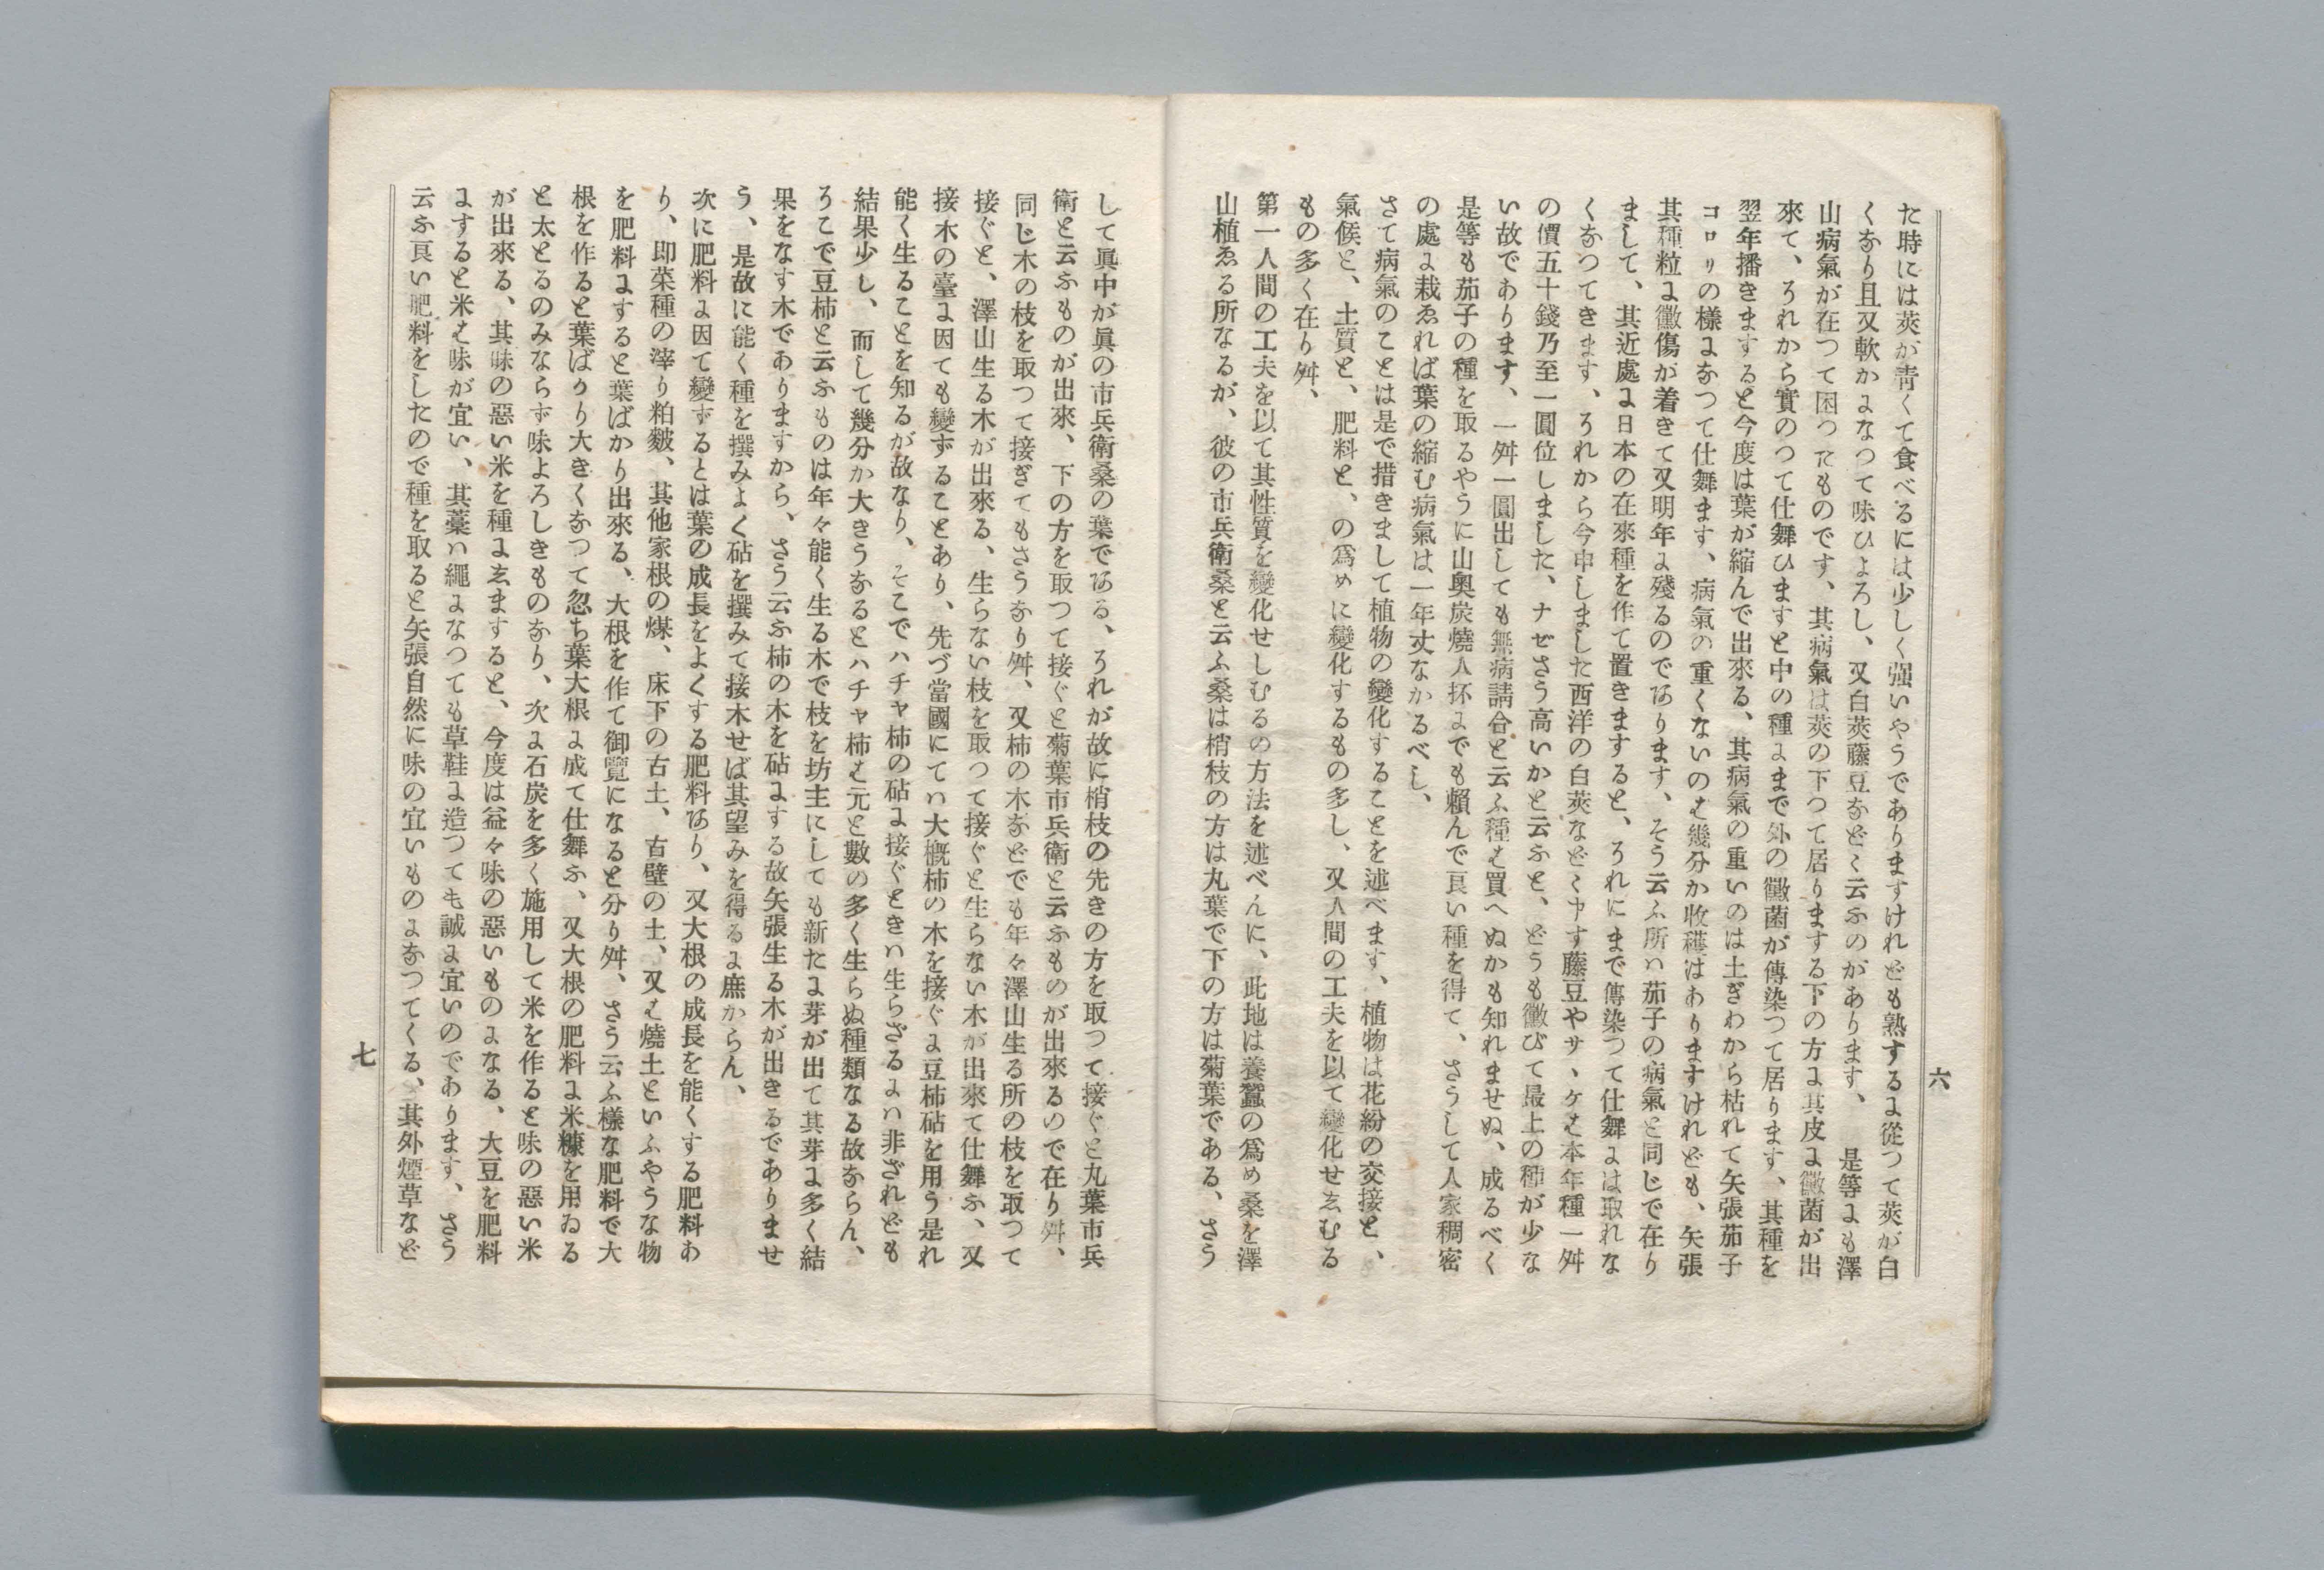 六
た時には莢が靑くて食べるには少しく强いやうでありますけれども熟するに從つて莢が白
くなり且又軟かになつて味ひよろし、又白莢藤豆などく云ふのがあります、　是等にも澤
山病氣が在つて困つたものです、其病氣は莢の下つて居りまする下の方に其皮に黴菌が出
來て、それから實のつて仕舞ひますと中の種にまで外の黴菌が傳染つて居ります、其種を
翌年播きますると今度は葉が縮んで出來る、其病氣の重いのは土ぎわから枯れて矢張茄子
コロリの樣になつて仕舞ます、病氣の重くないのは幾分か收穫はありますけれども、矢張
其種粒に黴傷が着きて又明年に殘るのであります、そう云ふ所ハ茄子の病氣と同じで在り
まして、其近處に日本の在來種を作て置きますると、それにまで傳染つて仕舞には取れな
くなつてきます、それから今申しました西洋の白莢などく申す藤豆やサヽケは本年種一舛
の價五十錢乃至一圓位しました、ナぜさう高いかと云ふと、どうも黴びて最上の種が少な
い故であります、一舛一圓出しても無病請合と云ふ種は買へぬかも知れませぬ、成るべく
是等も茄子の種を取るやうに山奧炭燒人抔にでも賴んで良い種を得て、さうして人家稠密
の處に栽ゑれば葉の縮む病氣は一年丈なかるべし、
さて病氣のことは是で措きまして植物の變化することを述べます、植物は花紛の交接と、
氣候と、土質と、肥料と、の爲めに變化するもの多し、又人間の工夫を以て變化せゑむる
もの多く在り舛、
第一人間の工夫を以て其性質を變化せしむるの方法を述べんに、此地は養蠶の爲め桑を澤
山植ゑる所なるが、彼の市兵衛桑と云ふ桑は梢枝の方は丸葉で下の方は菊葉である、さう
して眞中が眞の市兵衛桑の葉である、それが故に梢枝の先きの方を取つて接ぐと丸葉市兵
衛と云ふものが出來、下の方を取つて接ぐと菊葉市兵衛と云ふものが出來るので在り舛、
同じ木の枝を取つて接ぎてもさうなり舛、又柿の木などでも年々澤山生る所の枝を取つて
接ぐと、澤山生る木が出來る、生らない枝を取つて接ぐと生らない木が出來て仕舞ふ、又
接木の臺に因ても變ずることあり、先づ當國にてハ大槪柿の木を接ぐに豆柿砧を用う是れ
能く生ることを知るが故なり、そこでハチヤ柿の砧に接ぐときハ生らざるにハ非ざれども
結果少し、而して幾分か大きうなるとハチヤ柿は元と數の多く生らぬ種類なる故ならん、
そこで豆柿と云ふものは年々能く生る木で枝を坊主にしても新たに芽が出て其芽に多く結
果をなす木でありますから、さう云ふ柿の木を砧にする故矢張生る木が出きるでありませ
う、是故に能く種を撰みよく砧を撰みて接木せば其望みを得るに庶からん、
次に肥料に因て變ずるとは葉の成長をよくする肥料あり、又大根の成長を能くする肥料あ
り、即菜種の滓り粕麬、其他家根の煤、床下の古土、古壁の土、又は燒土といふやうな物
を肥料にすると葉ばかり出來る、大根を作て御覽になると分り舛、さう云ふ樣な肥料で大
根を作ると葉ばかり大きくなつて忽ち葉大根に成て仕舞ふ、又大根の肥料に米糠を用ゐる
と太とるのみならず味よろしきものなり、次に石炭を多く施用して米を作ると味の惡い米
が出來る、其味の惡い米を種にゑますると、今度は益々味の惡いものになる、大豆を肥料
にすると米は味が宜い、其藁ハ繩になつても草鞋に造つても誠に宜いのであります、さう
云ふ良い肥料をしたので種を取ると矢張自然に味の宜いものになつてくる、其外煙草など
七